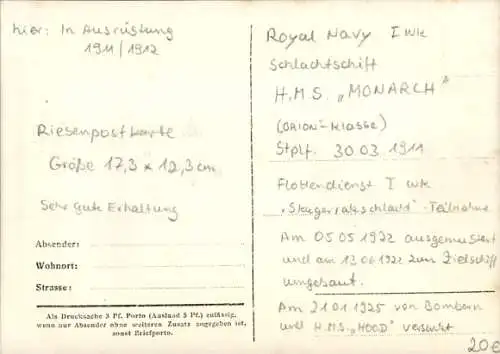 hier: In Ausrüstung
1911/1912
Riesenpostkarte
Größe 17,3 x 12,3 cm
Sehr gute Erhaltung
Absender:
Wohnort:
Strasse:
Als Drucksache 3 Pf. Porto (Ausland 5 Pf.) zulässig,
wenn nur Absender ohne weiteren Zusatz angegeben ist,
sonst Briefporto.
Royal Navy I WK
Schlachtschiff
H.M.S. „MONARCH"
(ORION-Klasse)
Stplf. 30.03.1911
Flottendienst I WK
„Skagerrakschlacht"-Teilnahme
Am 05.05.1922 ausgemustert
und am 13.06.1922 zum Zielschiff
umgebaut.
Am 21.01.1925 von Bombern
und H.M.S. „HOOD" versenkt
20€